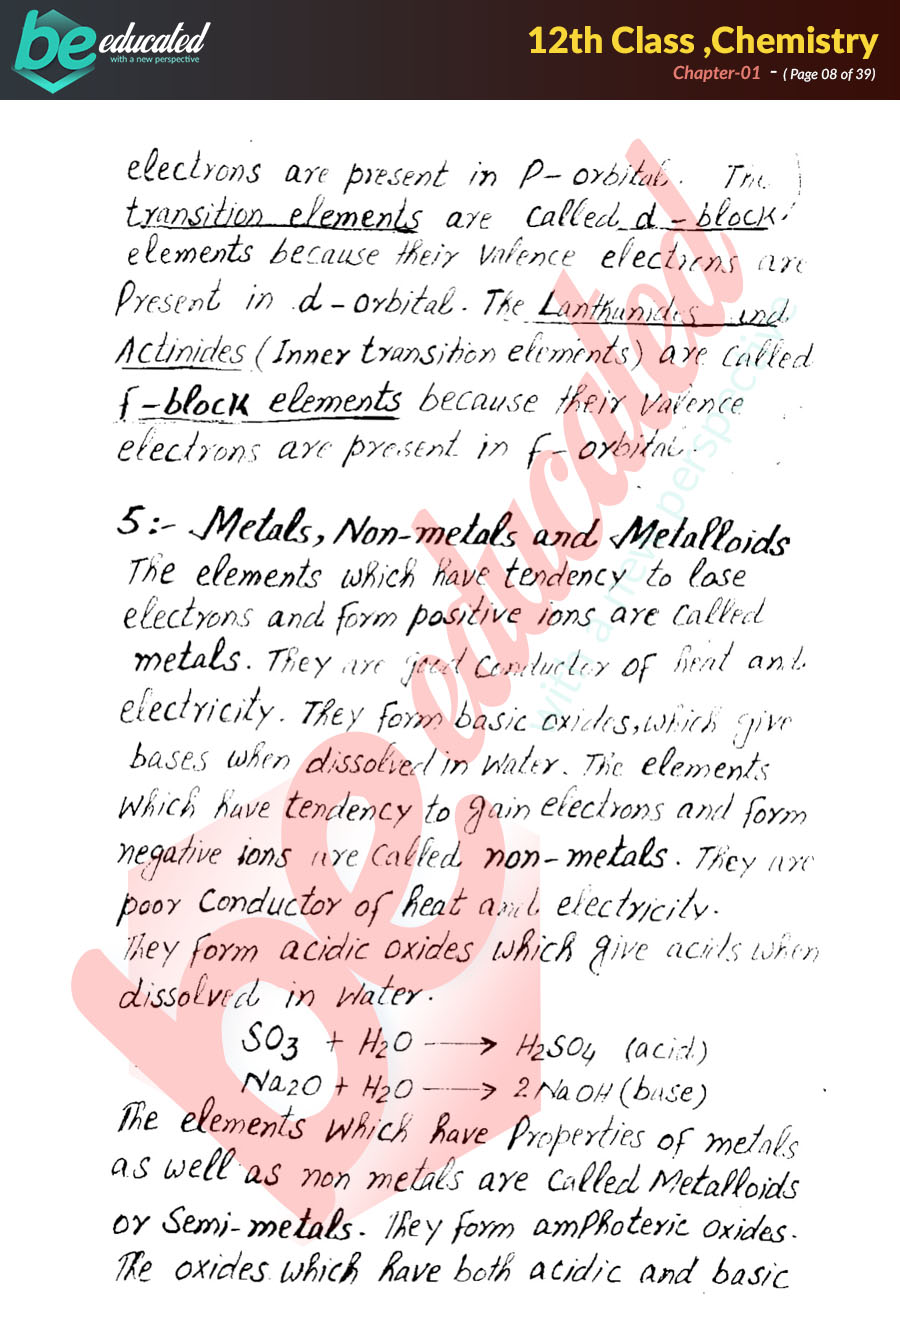 be educated
with a new perspective
12th Class ,Chemistry
Chapter-01 - ( Page 08 of 39)
electrons are present in P-orbital. The
transition elements are called d-block
elements because their valence electrons are
Present in d-orbital. The Lanthanides and
Actinides (Inner transition elements) are called
f-block elements because their valence
electrons are present in f-orbital.
5:- Metals, Non-metals and Metalloids
The elements which have tendency to lose
electrons and form positive ions are called
metals. They are good conductor of heat and
electricity. They form basic oxides, which give
bases when dissolved in water. The elements
which have tendency to gain electrons and form
negative ions are called non-metals. They are
poor conductor of heat and electricity.
They form acidic oxides which give acids when
dissolved in water.
SO3 + H2O ⟶ H2SO4 (acid)
Na2O + H2O ⟶ 2NaOH (base)
The elements which have Properties of metals
as well as non metals are called Metalloids
or Semi-metals. They form amphoteric oxides.
The oxides which have both acidic and basic
be educated
with a new perspective